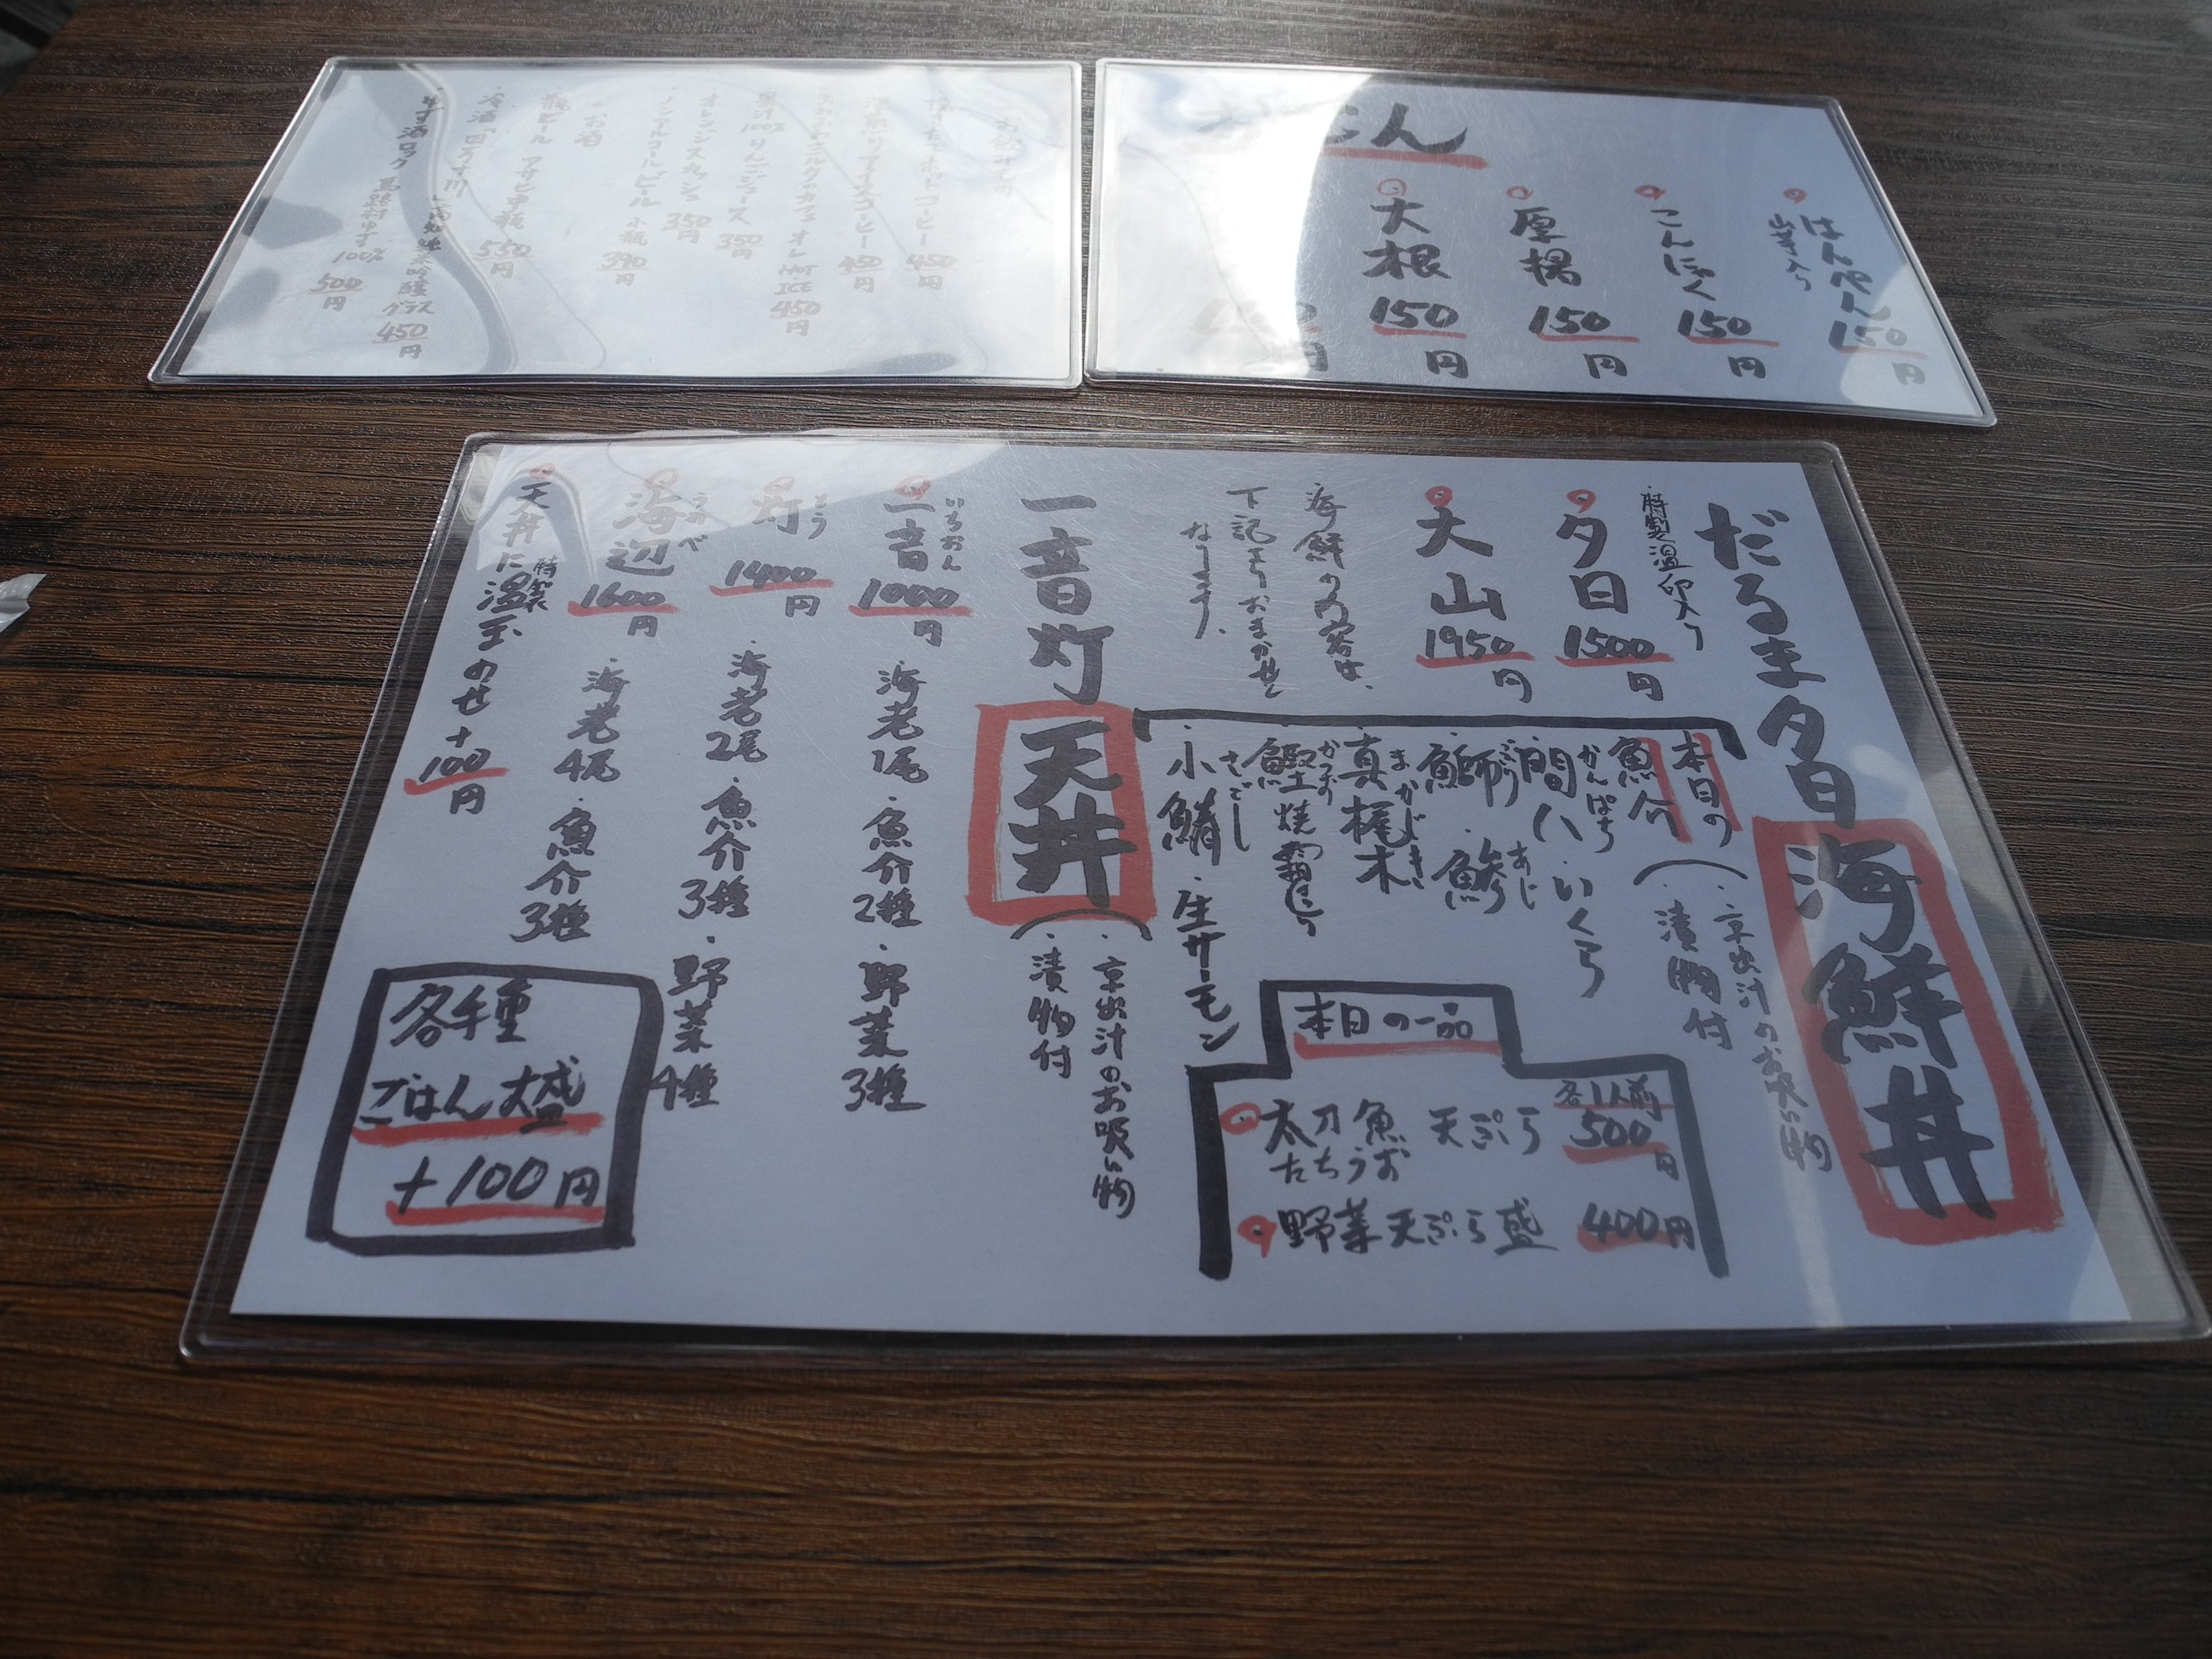 お飲みもの
ホットコーヒー 450円
アイスコーヒー 450円
ミルクのカフェオレ HOT ICE 450円
果汁100% りんごジュース 350円
オレンジスカッシュ 350円
ノンアルコールビール 小瓶 390円
・お酒
瓶ビール アサヒ中瓶 550円
グラス 450円
ゆず酒ロック 馬路村ゆず100% 500円
でん
はんぺん 150円
山芋入り
こんにゃく 150円
厚揚 150円
大根 150円
150円
だるま夕日 海鮮丼
・京出汁のお吸い物
・漬物付
特製温卵入り
夕日 1500円
大山 1950円
海鮮の内容は、
下記よりおまかせと
なります。
本日の
魚介
・間八 かんぱち ・いくら
・鰤 ぶり ・鯵 あじ
・真梶木 まかじき
・鰹 かつお 焼霜造り
・小鰆 さごし ・生サーモン
本日の一品
各1人前
太刀魚 天ぷら 500円
たちうお
野菜天ぷら盛 400円
一音灯 天丼
・京出汁のお吸い物
・漬物付
一音 いちおん 1000円 ・海老1尾 ・魚介2種 ・野菜3種
灯 とう 1400円 ・海老2尾 ・魚介3種 ・野菜4種
海辺 うみべ 1600円 ・海老4尾 ・魚介3種
天丼に特製温玉のせ +100円
各種
ごはん大盛
+100円